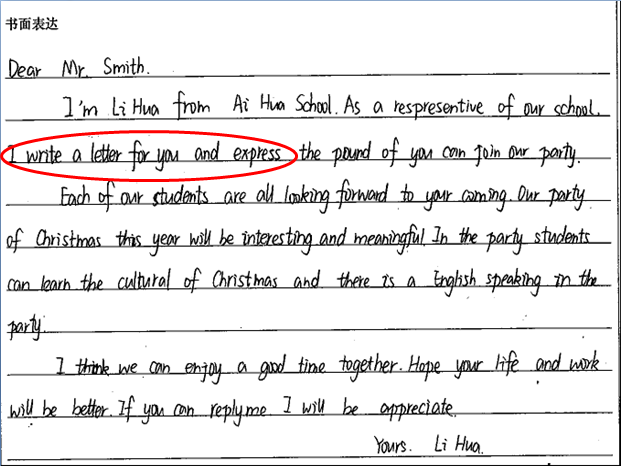 书面表达
Dear Mr. Smith.
I'm Li Hua from Ai Hua School. As a respresentive of our school.
I write a letter for you and express the pound of you can join our party.
Each of our students are all looking forward to your coming. Our party
of Christmas this year will be interesting and meaningful. In the party students
can learn the cultural of Christmas and there is a English speaking in the
party.
I think we can enjoy a good time together. Hope your life and work
will be better. If you can reply me I will be appreciate.
Yours. Li Hua.